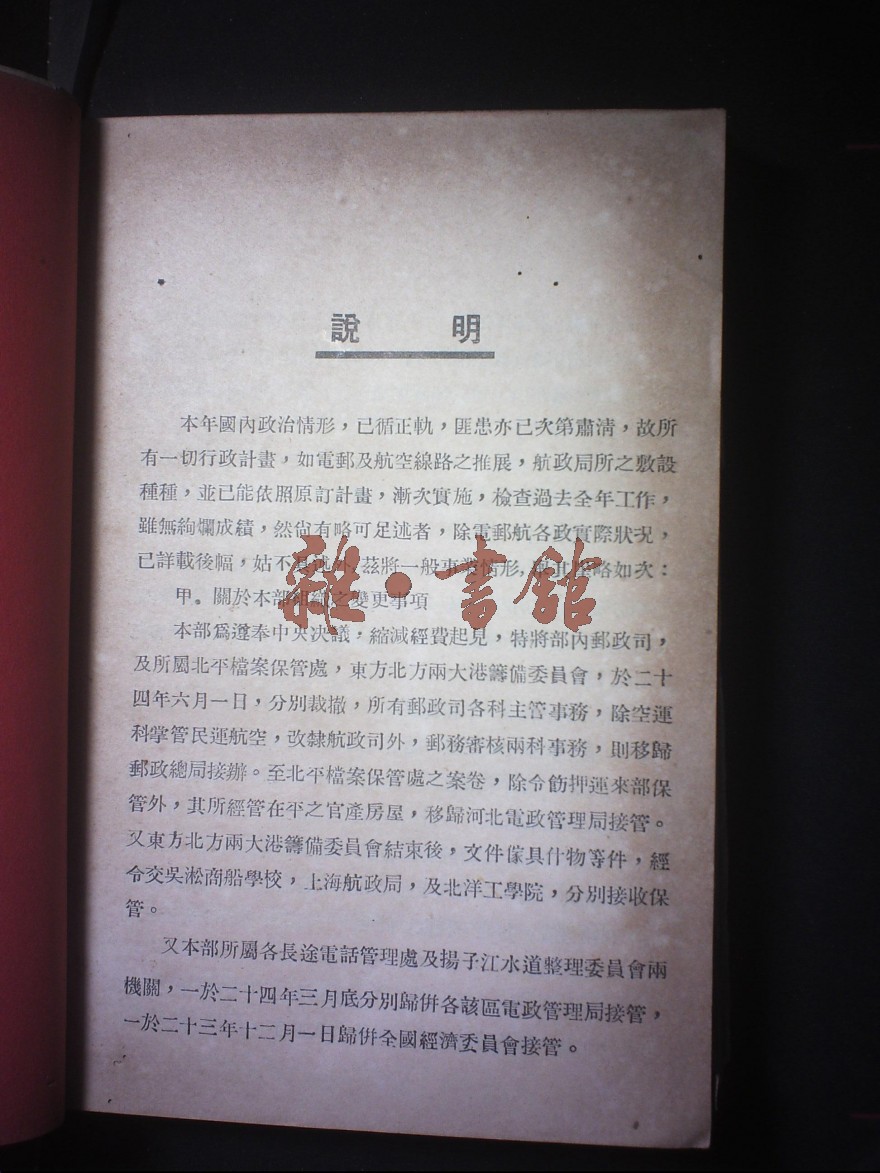 說 明
本年國內政治情形，已循正軌，匪患亦已次第肅淸，故所
有一切行政計畫，如電郵及航空線路之推展，航政局所之敷設
種種，並已能依照原訂計畫，漸次實施，檢查過去全年工作，
雖無絢爛成績，然尙有略可足述者，除電郵航各政實際狀况，
已詳載後幅，姑不具述外，茲將一般事業情形，略如次：
甲。關於本部組織之變更事項
本部爲遵奉中央决議，縮減經費起見，特將部內郵政司，
及所屬北平檔案保管處，東方北方兩大港籌備委員會，於二十
四年六月一日，分別裁撤，所有郵政司各科主管事務，除空運
科掌管民運航空，改隸航政司外，郵務審核兩科事務，則移歸
郵政總局接辦。至北平檔案保管處之案卷，除令飭押運來部保
管外，其所經管在平之官產房屋，移歸河北電政管理局接管。
又東方北方兩大港籌備委員會結束後，文件傢具什物等件，經
令交吳淞商船學校，上海航政局，及北洋工學院，分別接收保
管。
又本部所屬各長途電話管理處及揚子江水道整理委員會兩
機關，一於二十四年三月底分別歸併各該區電政管理局接管，
一於二十三年十二月一日歸併全國經濟委員會接管。
雜·書館